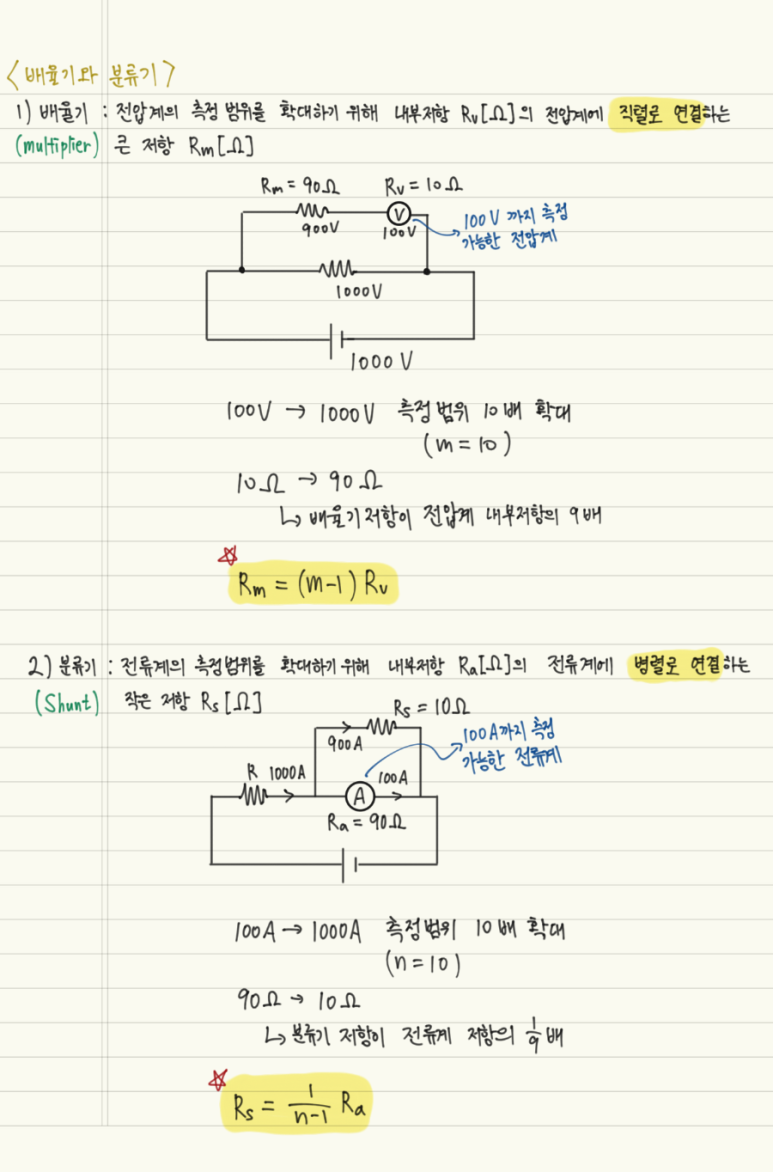 <배율기와 분류기>
1) 배율기 : 전압계의 측정 범위를 확대하기 위해 내부저항 Rv[Ω]의 전압계에 직렬로 연결하는
(multiplier) 큰 저항 Rm[Ω]
Rm = 90Ω Rv = 10Ω
900V 100V
100V 까지 측정
가능한 전압계
1000V
1000V
100V → 1000V 측정범위 10배 확대
(m = 10)
10Ω → 90Ω
↳ 배율기저항이 전압계 내부저항의 9배
☆
Rm = (m-1) Rv
2) 분류기 : 전류계의 측정범위를 확대하기 위해 내부저항 Ra[Ω]의 전류계에 병렬로 연결하는
(Shunt) 작은 저항 Rs[Ω]
Rs = 10Ω
900A
100A까지 측정
가능한 전류계
R 1000A
A 100A
Ra = 90Ω
100A → 1000A 측정범위 10배 확대
(n = 10)
90Ω → 10Ω
↳ 분류기 저항이 전류계 저항의 1/9 배
☆
Rs = 1/(n-1) Ra